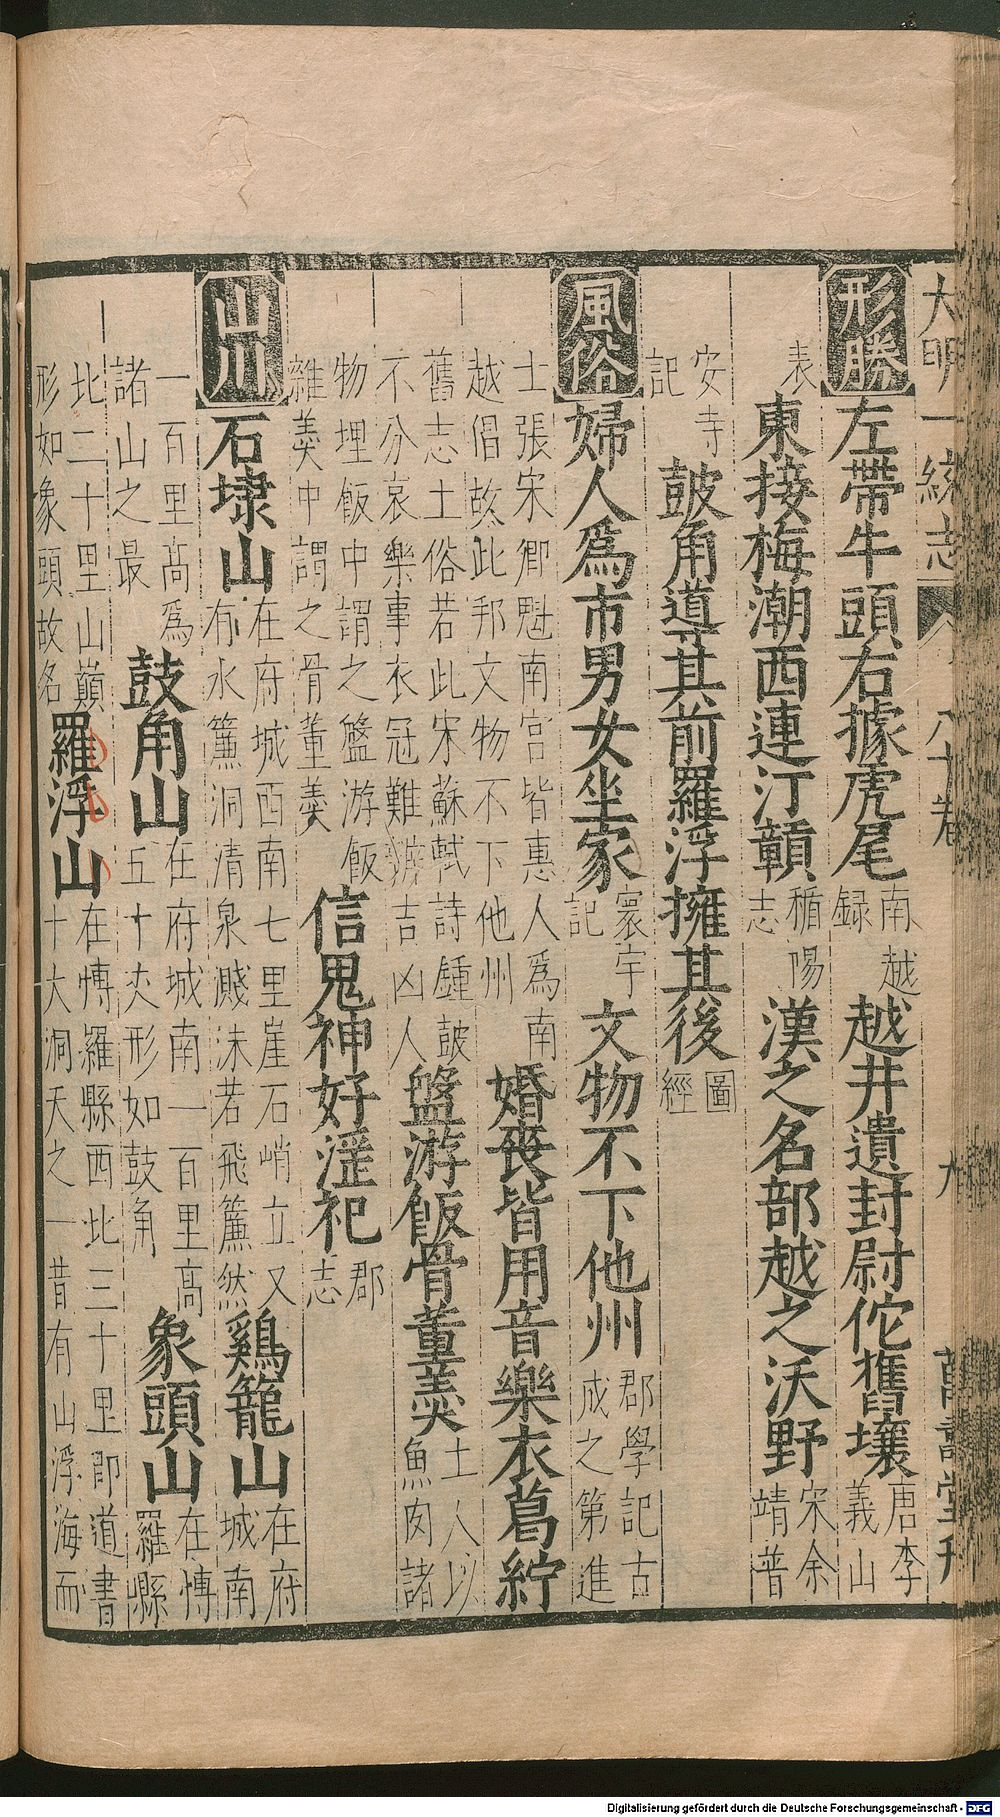 大明一統志 八十卷 九 萬壽堂刊
形勝 左帶牛頭右據虎尾 南越録 越井遺封尉佗舊壤 唐李義山
表 東接梅潮西連汀贛 循陽志 漢之名部越之沃野 宋余靖普
安寺記 鼓角道其前羅浮擁其後 圖經
風俗 婦人爲市男女坐家 寰宇記 文物不下他州 郡學記古成之第進
士張宋卿魁南宮皆惠人爲南越倡故此邦文物不下他州 婚喪皆用音樂衣葛紵
舊志土俗若此宋蘇軾詩鍾鼓不分哀樂事衣冠難辨吉凶人 盤游飯骨董羹 土人以魚肉諸
物埋飯中謂之盤游飯雜羹中謂之骨董羹 信鬼神好淫祀 郡志
山川 石埭山 在府城西南七里崖石峭立又有水簾洞清泉濺沫若飛簾然 鷄籠山 在府城南
一百里高爲諸山之最 鼓角山 在府城南一百里高五十丈形如鼓角 象頭山 在博羅縣
北二十里山巔形如象頭故名 羅浮山 在博羅縣西北三十里即道書十大洞天之一昔有山浮海而
Digitalisierung gefördert durch die Deutsche Forschungsgemeinschaft - DFG